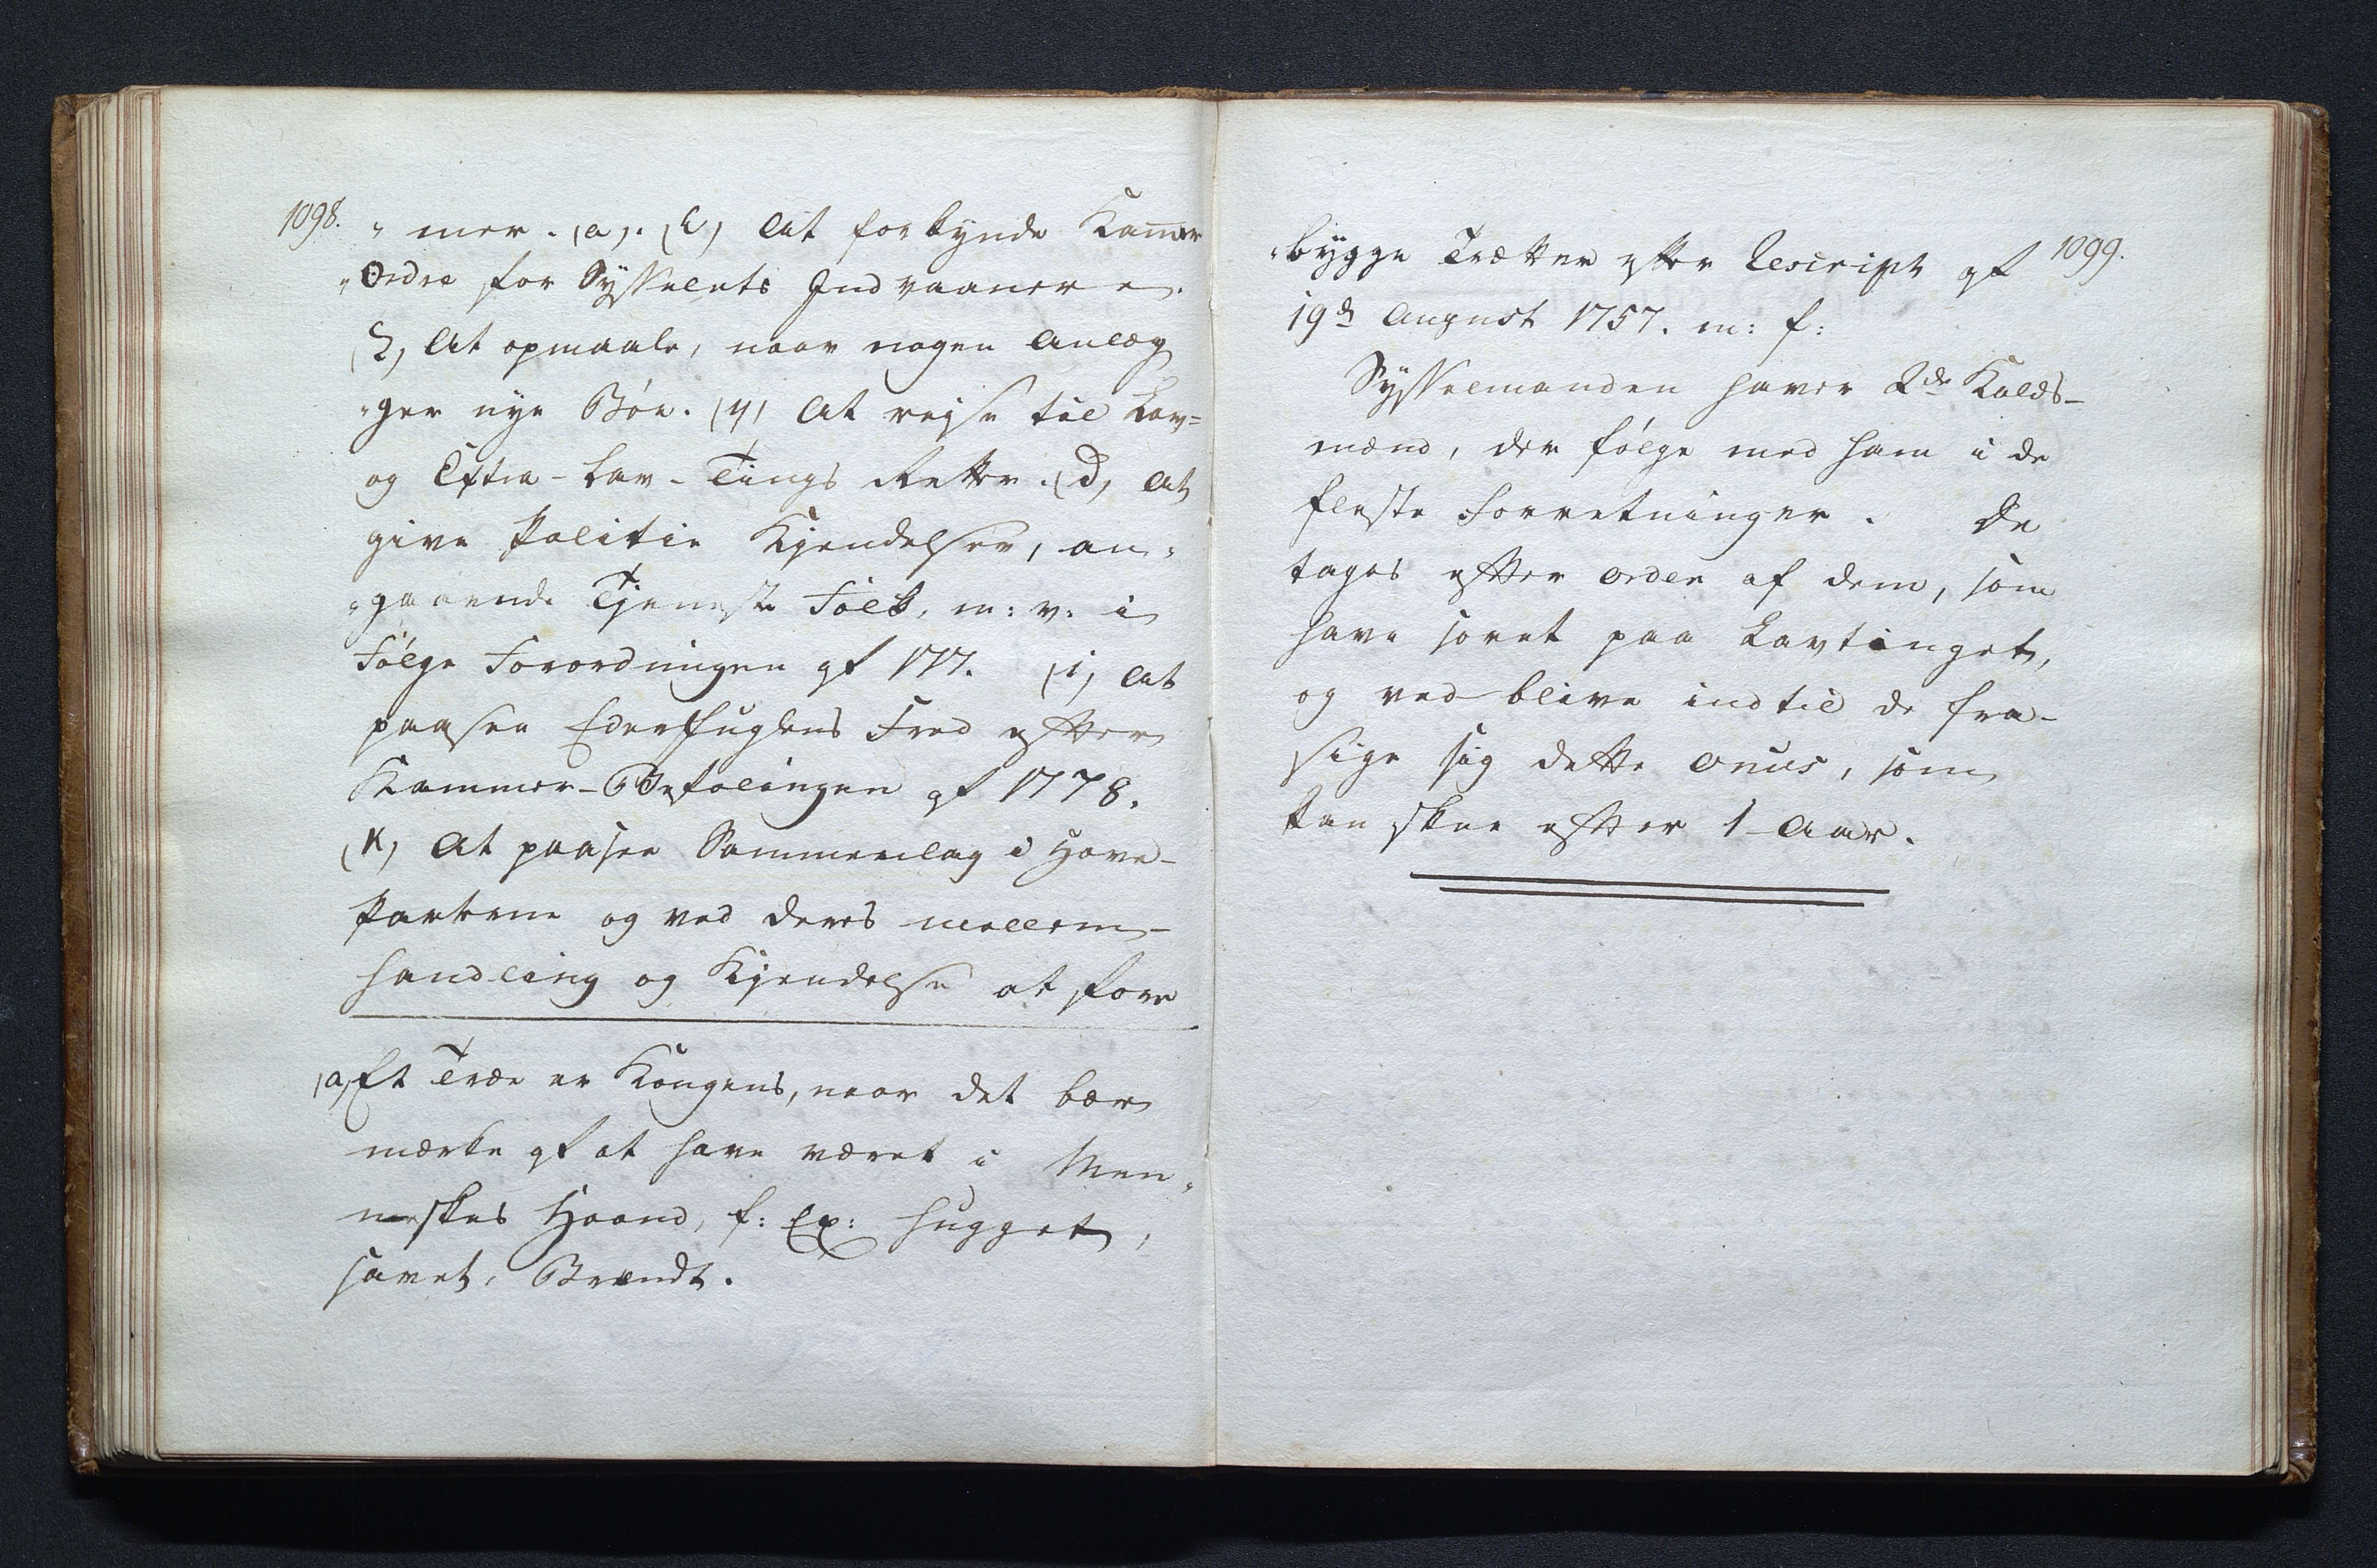 1098.
„mer. (a). (e) At forkynde Kam̅er
„Ordre for Sysselets Indvaanere.
(ζ) At opmaale, naar nogen anlæg
„ger nye Böe. (η) At rejse til Lav=
og Extra-Lav-Tings Retter. (ϑ) At
give Politie Kjendelser, an„
„gaaende Tjeneste Folk, m: v: i
Fölge Forordningen af 1777. (i) At
paasee Ederfuglens Fred efter
Kammer-Befalingen af 1778.
(κ) At paasee Sammenlag i Have-
Parterne og ved deres mellem-
handling og Kjendelse at fore
(a) Et Træe er Kongens, naar det bær
mærke af at have været i Men„
neskes Haand, f: Ex: hugget,
savet, Brændt.
1099.
„bygge Trætter efter Rescript af
19de August 1757. m: f:
Sysselmanden haver 2de Kalds-
mænd, der fölge med ham i de
fleste Forretninger. De
tages efter orden af dem, som
have soret paa Lavtinget,
og ved blive indtil de fra-
sige sig dette onus, som
kan skee efter 1 Aar.